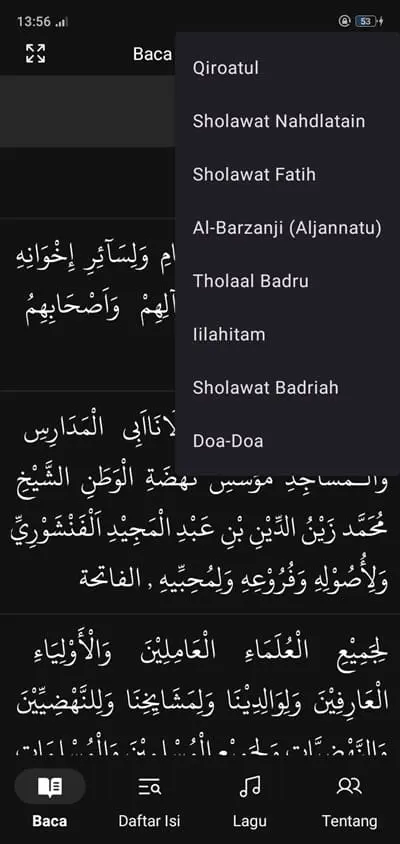 13:56
53
Baca
Qiroatul
Sholawat Nahdlatain
Sholawat Fatih
Al-Barzanji (Aljannatu)
Tholaal Badru
Iilahitam
Sholawat Badriah
Doa-Doa
وَلِسَآئِرِ إِخْوَانِهِ
آلِهِمْ وَاَصْحَابِهِمُ
الْمَدَارِسِ
وَالْمَسَاجِدِ مُؤَسِّسِ نَهْضَةِ الْوَطَنِ الشَّيْخِ
مُحَمَّد زَيْنُ الدِّيْنِ بْنِ عَبْدِ الْمَجِيْدِ اَلْفَنْشَوْرِيِّ
وَلِأُصُوْلِهِ وَفُرُوْعِهِ وَلِمُحِبِّيهِ , الفاتحة
لِجَمِيْعِ الْعُلَمَاءِ الْعَامِلِيْنَ وَالْأَوْلِيَاءِ
الْعَارِفِيْنَ وَلِوَالِدِيْنَا وَلِمَشَايِخِنَا وَلِلنَّهْضِيِّيْنَ
وَالنَّهْضِيَّاتِ وَلِجَمِيْعِ الْمُسْلِمِيْنَ وَالْمُسْلِمَاتِ
Baca
Daftar Isi
Lagu
Tentang